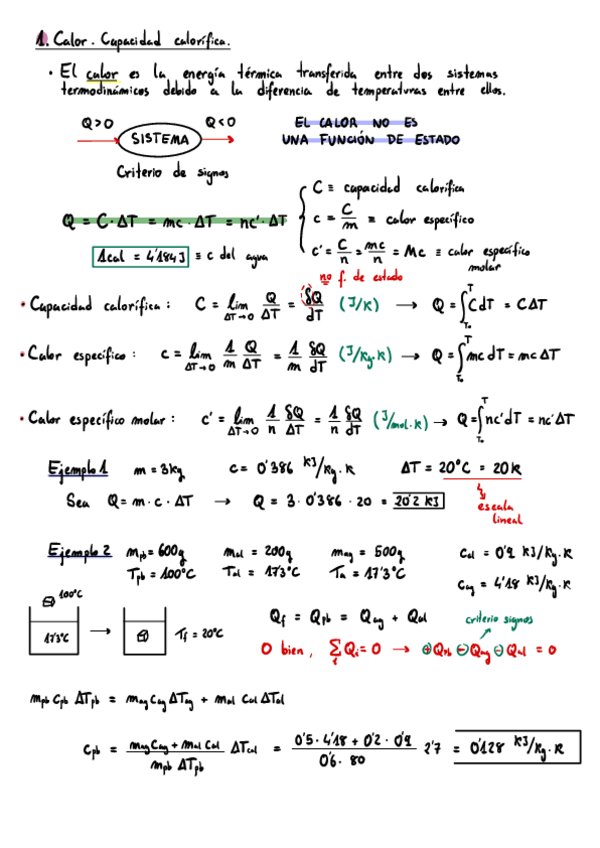 1. Calor. Capacidad calorífica.
• El calor es la energía térmica transferida entre dos sistemas
termodinámicos debido a la diferencia de temperaturas entre ellos.
Q>0 SISTEMA Q<0
Criterio de signos
EL CALOR NO ES
UNA FUNCIÓN DE ESTADO
Q = C·ΔT = mc·ΔT = nc'·ΔT
1cal = 4'184J ≡ c del agua
C ≡ capacidad calorífica
c = C/m ≡ calor específico
c' = C/n = mc/n = Mc ≡ calor específico
molar
no f. de estado
• Capacidad calorífica: C = lim ΔT→0 Q/ΔT = δQ/dT (J/K) → Q = ∫T₀^T CdT = CΔT
• Calor específico: c = lim ΔT→0 1/m Q/ΔT = 1/m δQ/dT (J/Kg·K) → Q = ∫T₀^T mcdT = mcΔT
• Calor específico molar: c' = lim ΔT→0 1/n δQ/ΔT = 1/n δQ/dT (J/mol·K) → Q = ∫T₀^T nc'dT = nc'ΔT
Ejemplo 1 m = 3kg c = 0'386 KJ/Kg·K ΔT = 20°C = 20K
Sea Q = m·c·ΔT → Q = 3·0'386·20 = 20'2 KJ
escala
lineal
Ejemplo 2 mpb = 600g mal = 200g mag = 500g cal = 0'9 KJ/Kg·K
Tpb = 100°C Tal = 17'3°C Ta = 17'3°C cag = 4'18 KJ/Kg·K
100°C
17'3°C → Tf = 20°C
Qf = Qpb = Qag + Qal
criterio signos
O bien, ΣQi = 0 → ⊕Qpb ⊖Qag ⊖Qal = 0
mpb cpb ΔTpb = mag cag ΔTag + mal cal ΔTal
cpb = (mag cag + mal cal)/(mpb ΔTpb) ΔTal = (0'5·4'18 + 0'2·0'9)/(0'6·80) 2'7 = 0'128 KJ/Kg·K